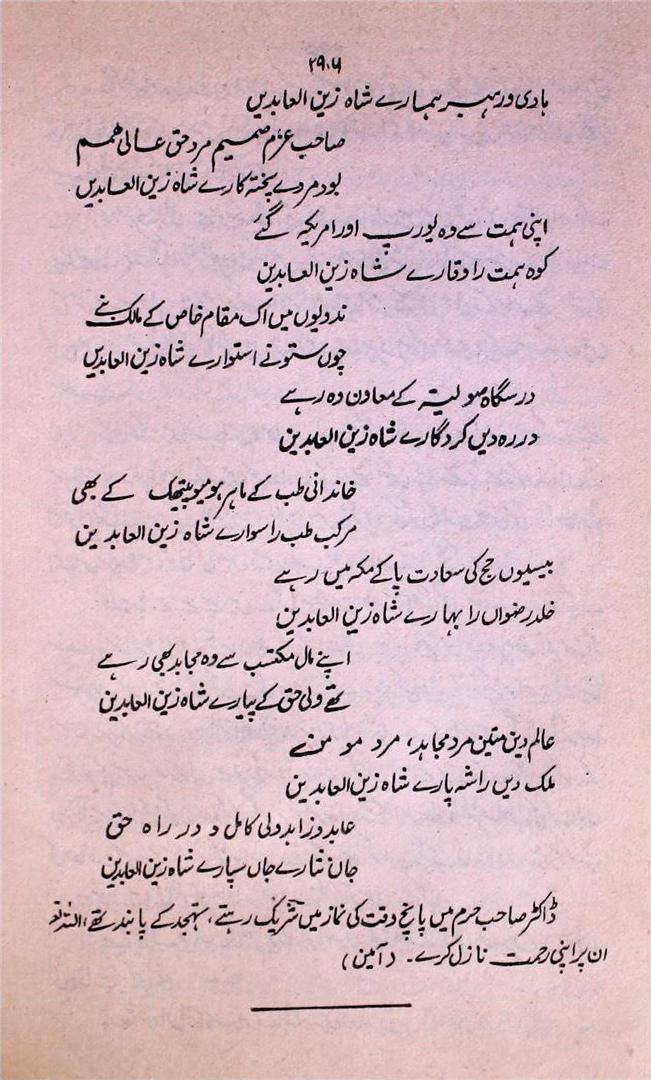 ۲۹۰۶
ہادی و رہبر ہمارے شاہ زین العابدیں
صاحب عزم صمیم مرد حق عالی ہمم
بود مردے پختہ کارے شاہ زین العابدیں
اپنی ہمت سے وہ یورپ اور امریکہ گئے
کوہ ہمت را وقارے شاہ زین العابدین
ندویوں میں اک مقام خاص کے مالک بنے
چوں ستونے استوارے شاہ زین العابدیں
درسگاہ صولتیہ کے معاون وہ رہے
در رہ دیں کردگارے شاہ زین العابدین
خاندانی طب کے ماہر ہومیوپیتھک کے بھی
مرکب طب را سوارے شاہ زین العابدین
بیسیوں حج کی سعادت پا کے مکہ میں رہے
خلد رضواں را بہارے شاہ زین العابدین
اپنے مال مکتسب سے وہ مجاہد بھی رہے
تھے ولی حق کے پیارے شاہ زین العابدین
عالم دین متین مرد مجاہد، مرد مومنے
ملک دیں را شہ پارے شاہ زین العابدین
عابد و زاہد ولی کامل و در راہ حق
جاں نثارے جاں سپارے شاہ زین العابدین
ڈاکٹر صاحب حرم میں پانچ وقت کی نماز میں شریک رہتے، تہجد کے پابند تھے، اللہ تعـ
ان پر اپنی رحمت نازل کرے۔ (آمین)